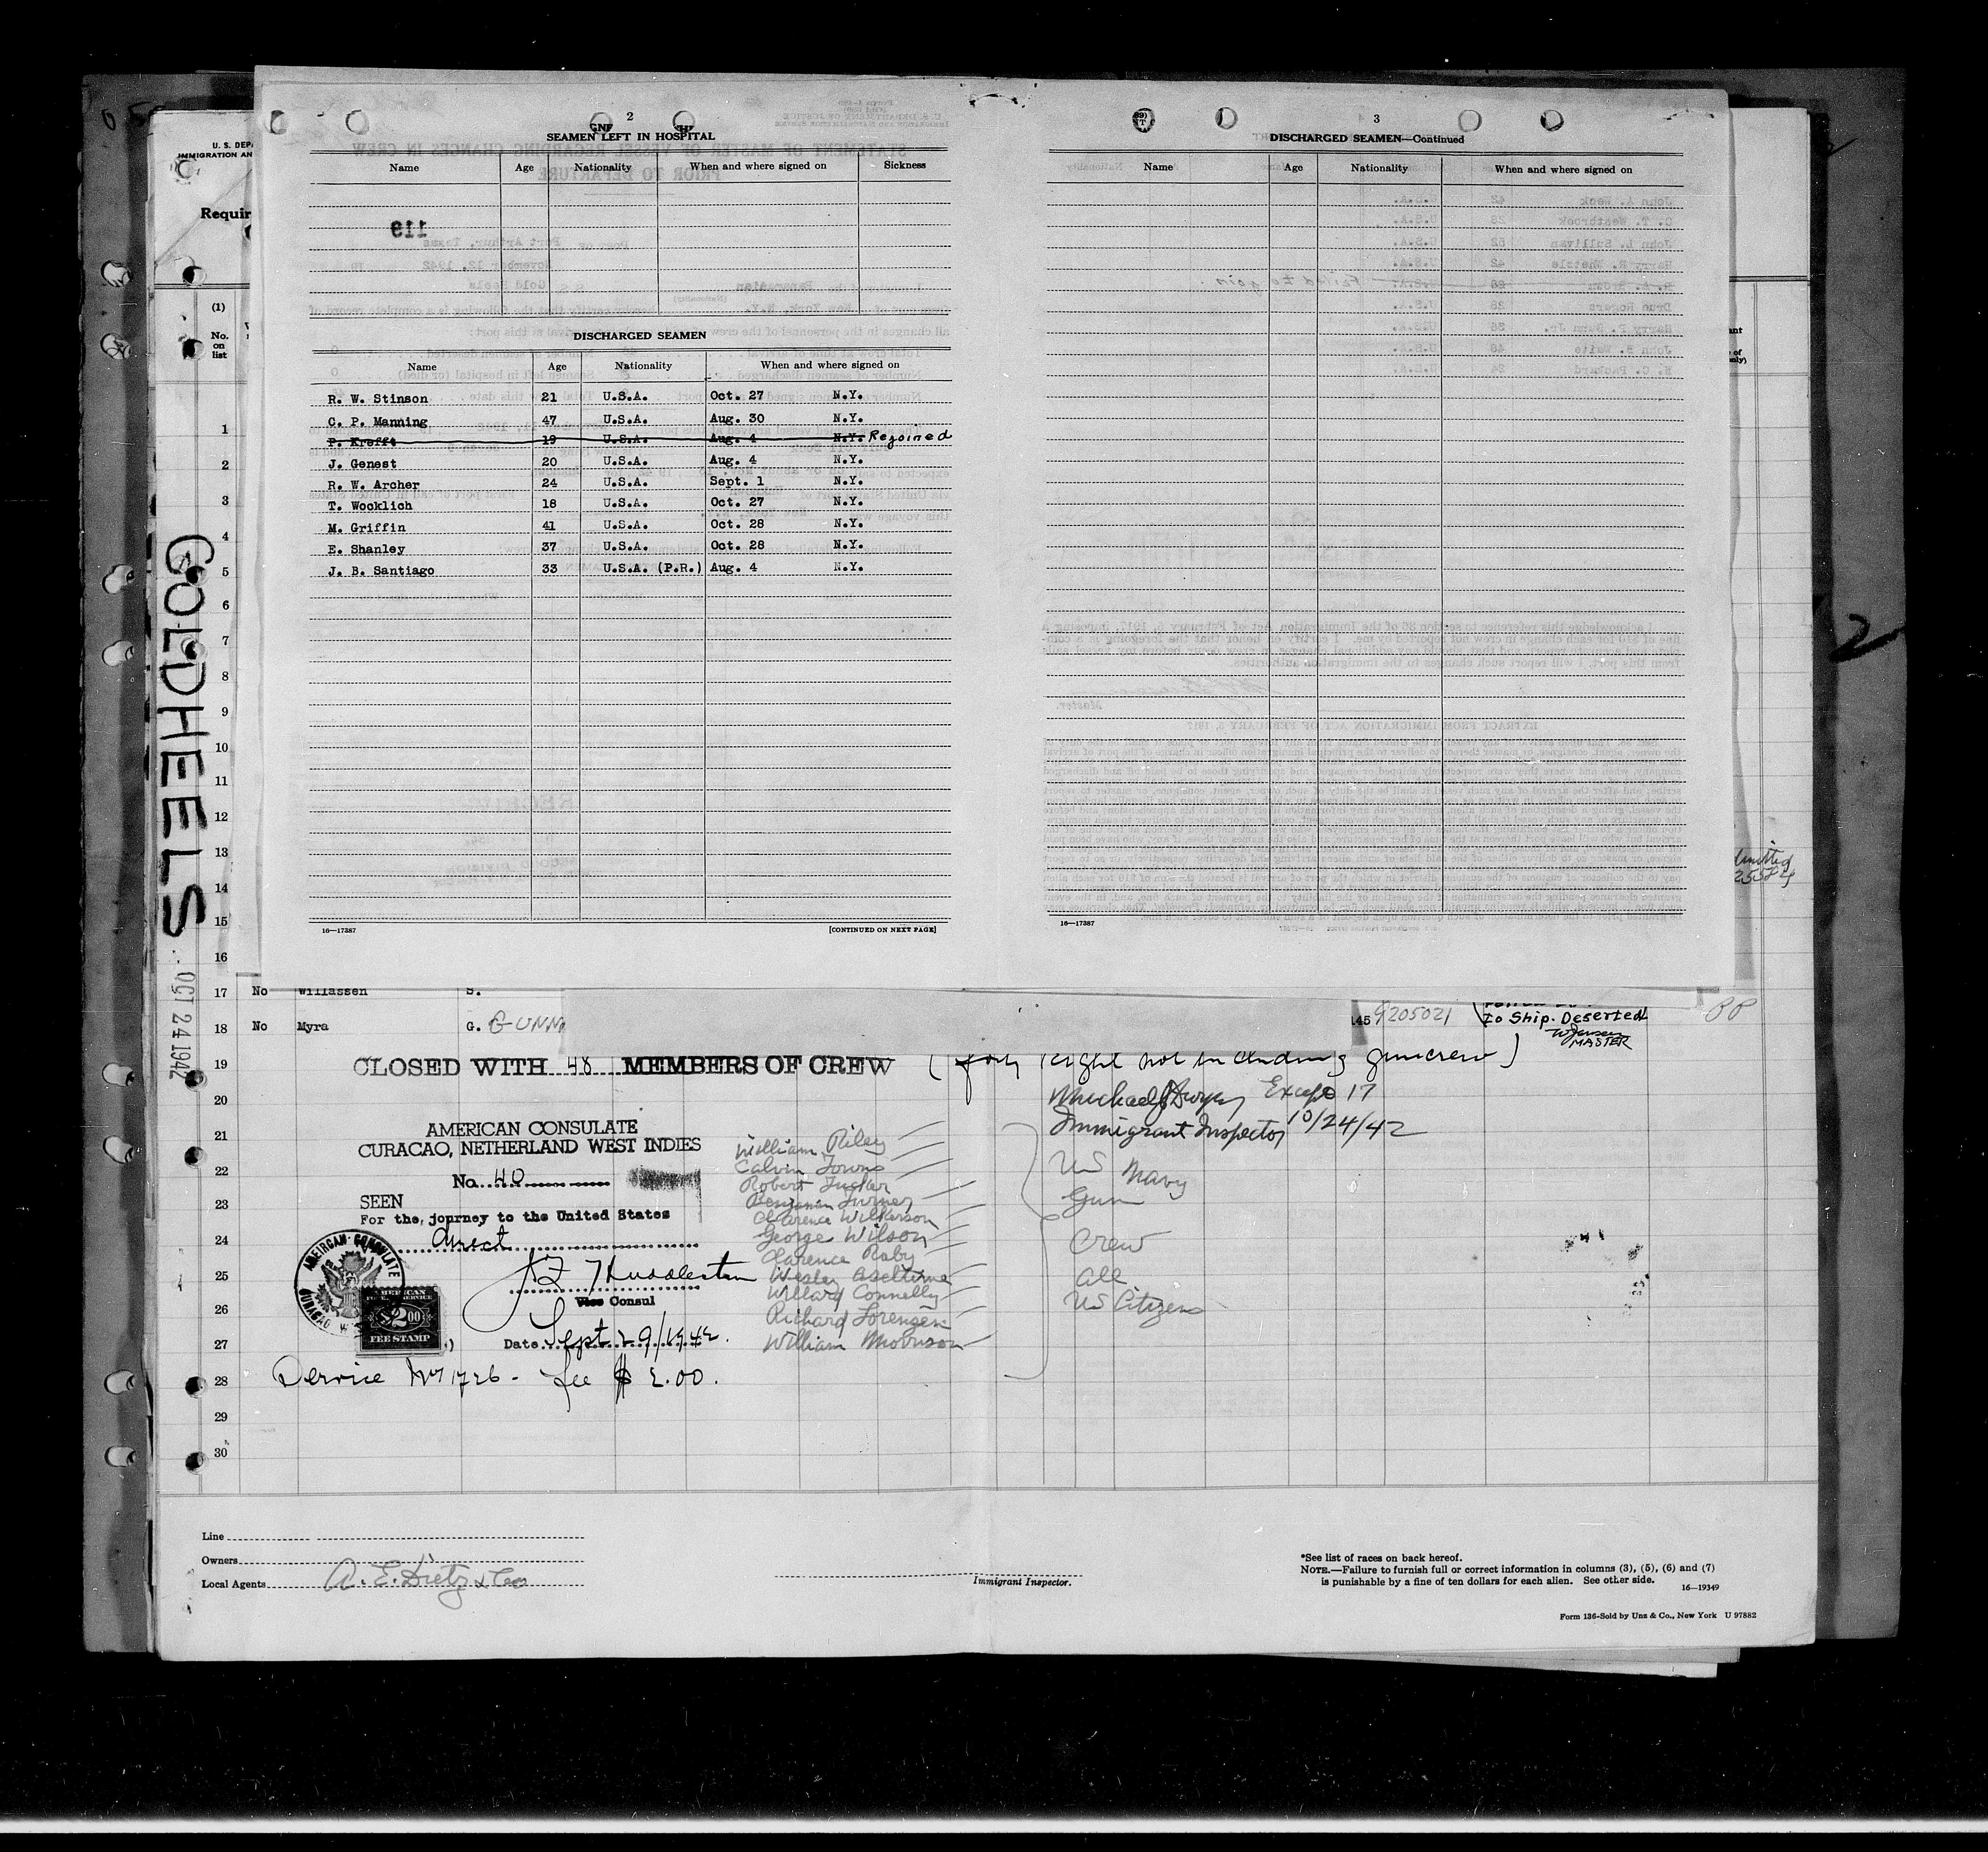 2
SEAMEN LEFT IN HOSPITAL
Name Age Nationality When and where signed on Sickness
119
DISCHARGED SEAMEN
Name Age Nationality When and where signed on
R. W. Stinson 21 U.S.A. Oct. 27 N.Y.
C. P. Manning 47 U.S.A. Aug. 30 N.Y.
P. Krefft 19 U.S.A. Aug. 4 N.Y. Rejoined
J. Genest 20 U.S.A. Aug. 4 N.Y.
R. W. Archer 24 U.S.A. Sept. 1 N.Y.
T. Wocklich 18 U.S.A. Oct. 27 N.Y.
M. Griffin 41 U.S.A. Oct. 28 N.Y.
E. Shanley 37 U.S.A. Oct. 28 N.Y.
J. B. Santiago 33 U.S.A. (P.R.) Aug. 4 N.Y.
16—17387 [CONTINUED ON NEXT PAGE]
3
DISCHARGED SEAMEN—Continued
Name Age Nationality When and where signed on
16—17387
U. S. DEPA
IMMIGRATION AN
Requir
(1)
No.
on
list
1
2
3
4
5
6
7
8
9
10
11
12
13
14
15
16
GOLDHEELS
OCT 24 1942
2
17 No Willassen S.
18 No Myra G. GUNN 145 9205021 to Ship. Deserted
MASTER
19 CLOSED WITH 48 MEMBERS OF CREW (forty eight not including guncrew)
20 Michael J Dwyer Except 17
Immigrant Inspector 10/24/42
21 AMERICAN CONSULATE
CURACAO, NETHERLAND WEST INDIES
22 No. 40
SEEN
23 For the journey to the United States
24 direct
25
Vice Consul
26
27 Date Sept. 29/1942.
28 Service No 1726 - fee $ 2.00.
29
30
AMERICAN CONSULATE
CURACAO
AMERICAN
SERVICE
$2.00
FEE STAMP
William Riley
Calvin Towns
Robert Tucker
Benjamin Turner
Clarence Wilkerson
George Wilson
Clarence Raby
Wesley Aseltine
Willard Connelly
Richard Lorensen
William Morrison
US Navy
Gun
Crew
all
US Citizens
Line
Owners
Local Agents A. E. Dietz & Co
Immigrant Inspector.
*See list of races on back hereof.
NOTE.—Failure to furnish full or correct information in columns (3), (5), (6) and (7)
is punishable by a fine of ten dollars for each alien. See other side.
16—19349
Form 136-Sold by Unz & Co., New York U 97882